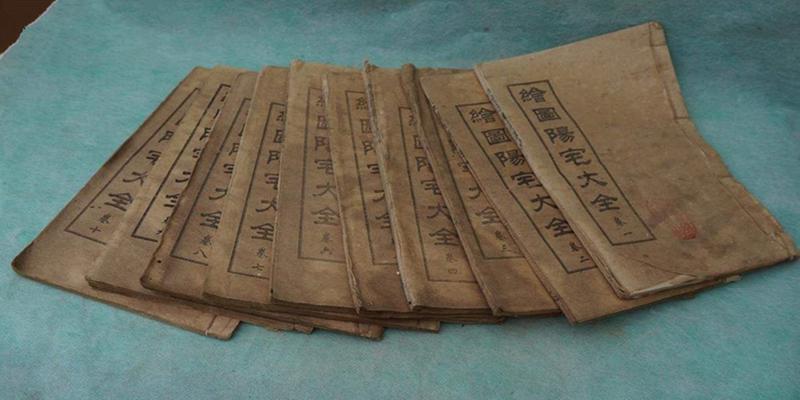 繪圖陽宅大全 卷一
繪圖陽宅大全 卷二
大全 卷三
圖陽宅大全 卷四
繪圖陽宅
繪圖陽宅大全 卷六
圖陽宅大全 卷七
全 卷八
全
大全 卷十